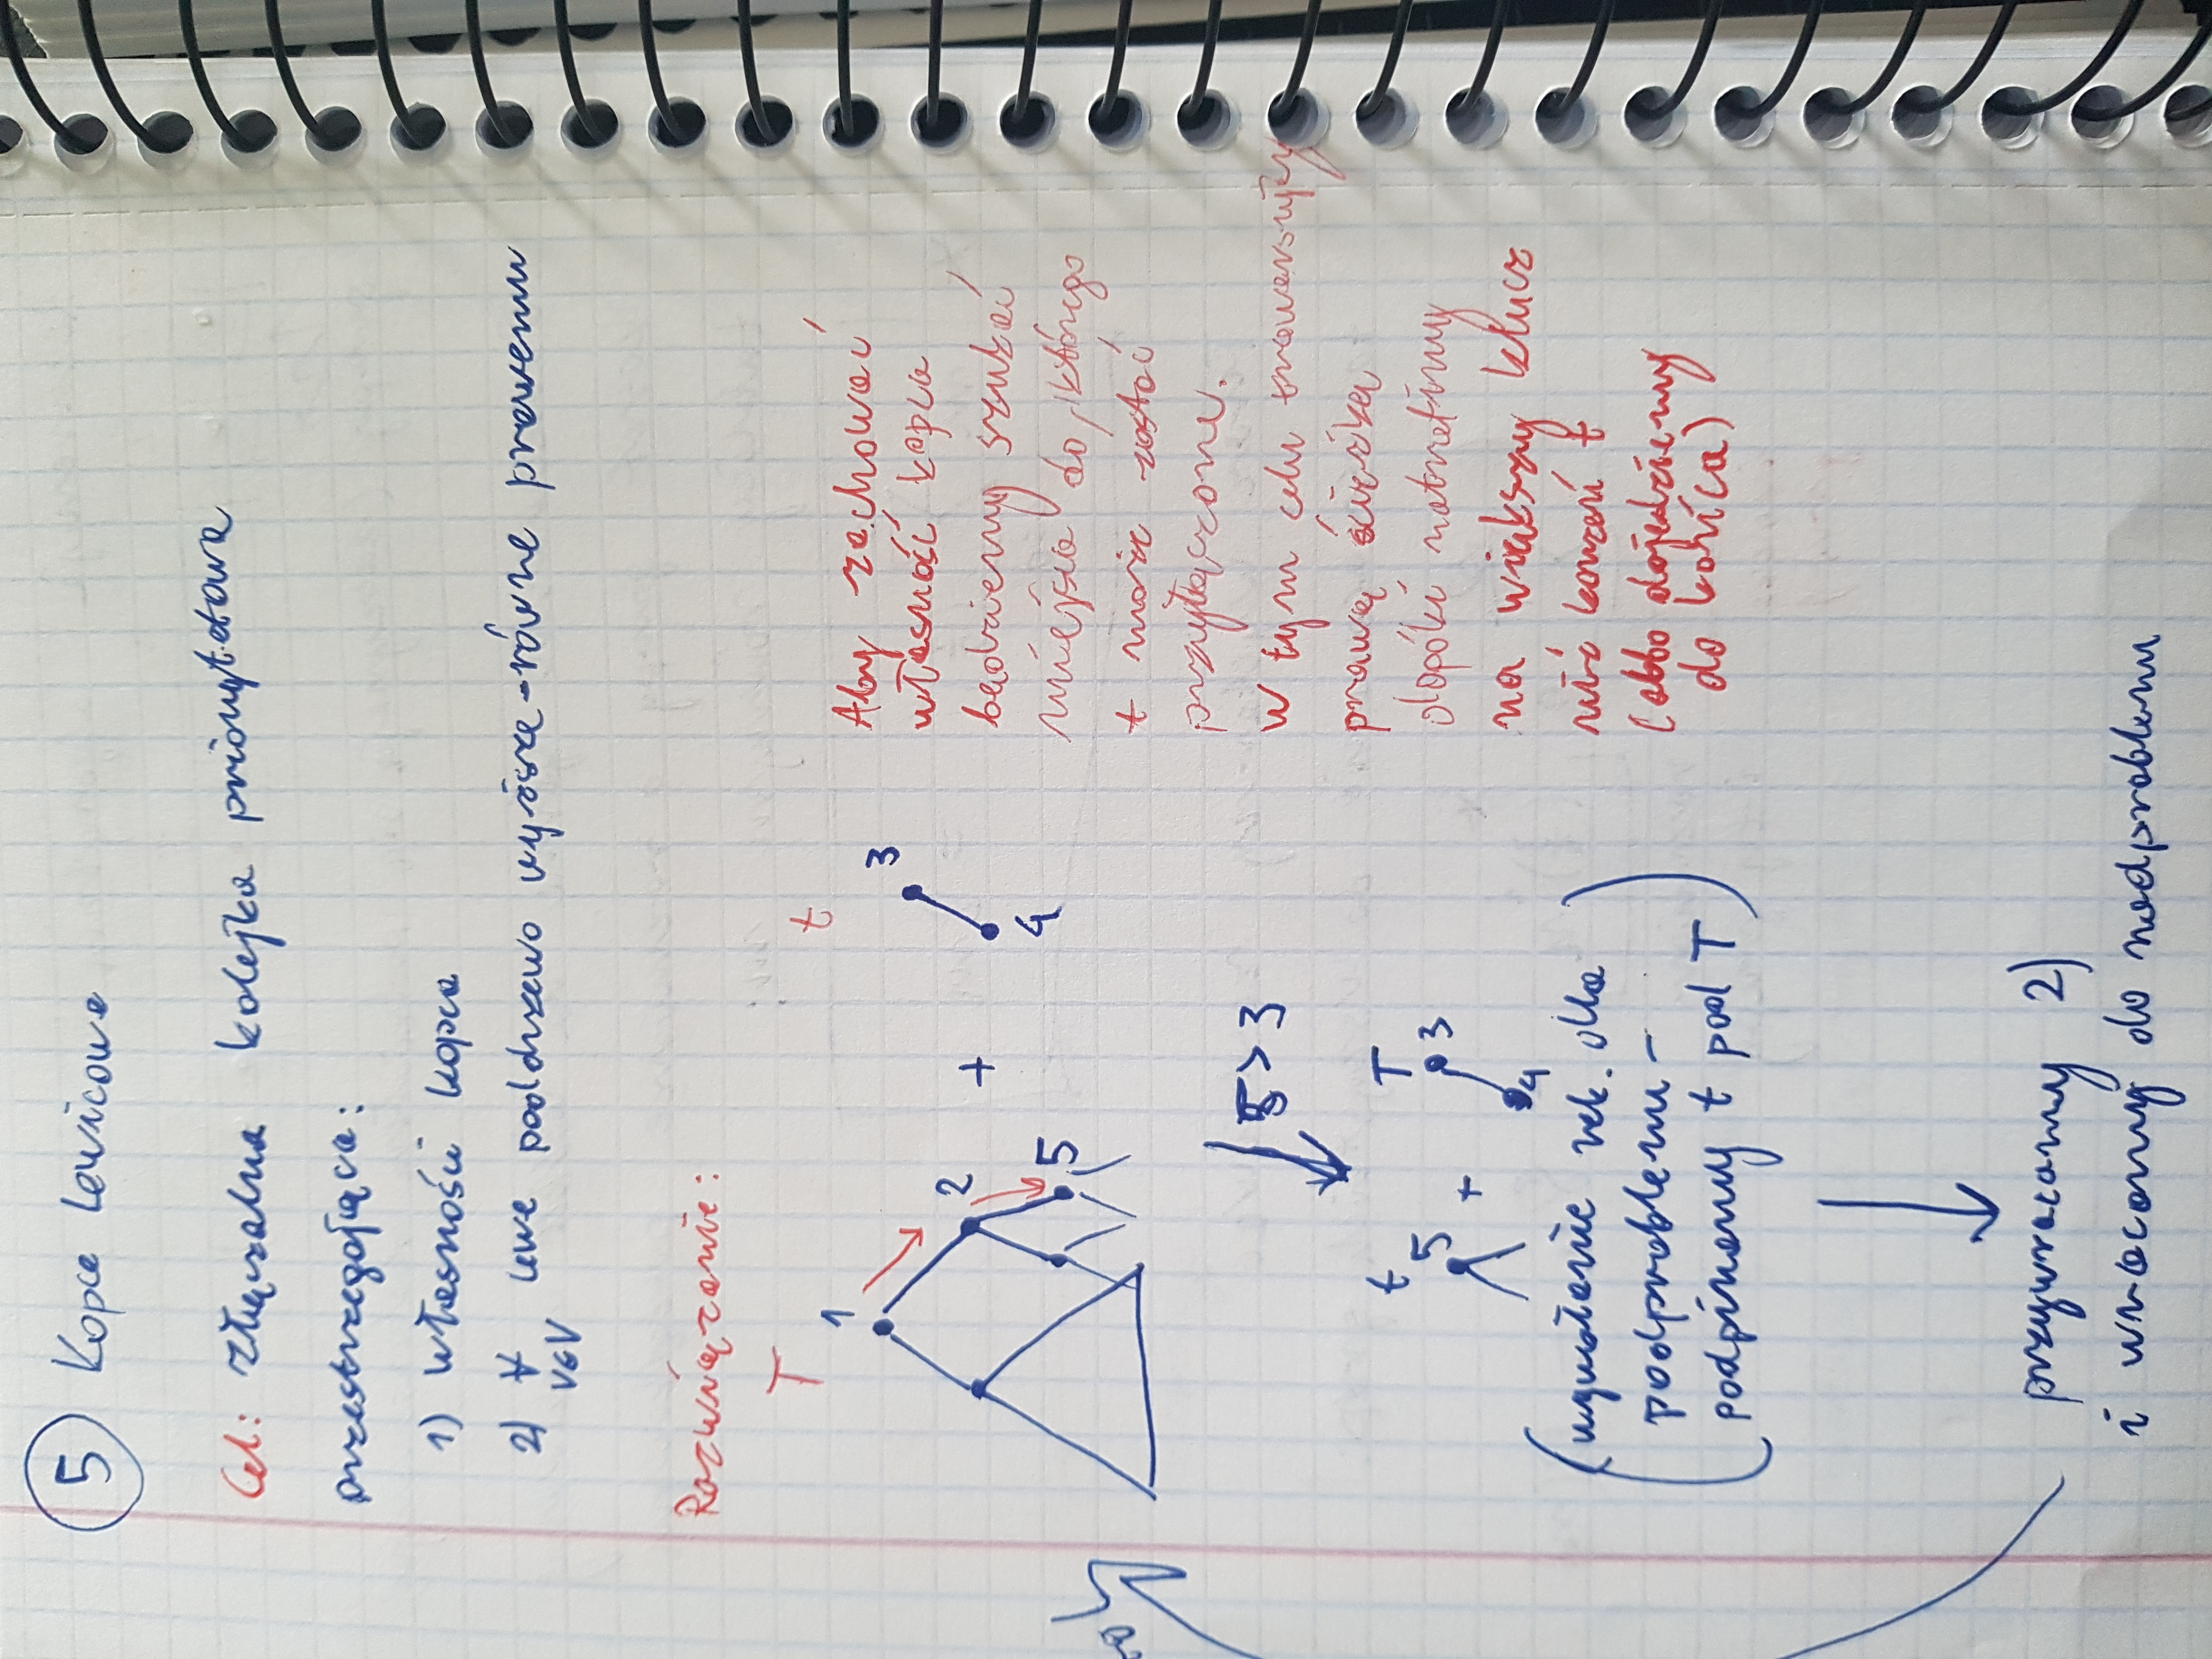 5 Kopce Lewicowe
Cel: złączalna kolejka priorytetowa
przestrzegająca:
1) własności kopca
2) ∀ lewe poddrzewo wyższe-równe prawemu
v∈V
Rozwiązanie:
T
t
1
2
5
+
3
4
Aby zachować
własność kopca
będziemy szukać
miejsca do, którego
t może zostać
przyłączone.
W tym celu trawersujemy
prawą ścieżką
dopóki natrafimy
na większy klucz
niż korzeń t
(albo dojedziemy
do końca)
5 > 3
t
T
5
+
3
4
(wywołanie rek. dla
podproblemu -
podpinamy t pod T)
przywracamy 2)
i wracamy do nadproblemu